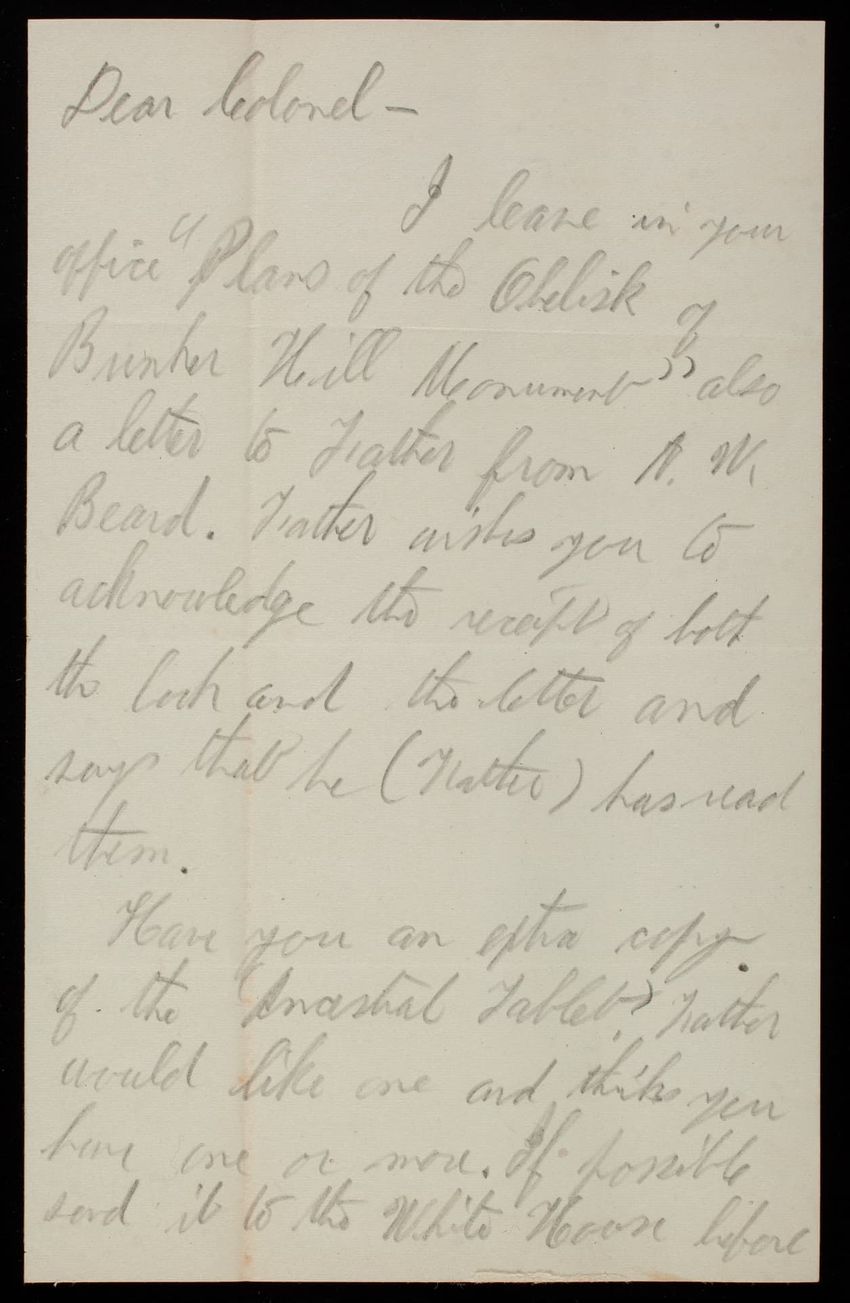 Dear Colonel –
I leave in your
office "Plans of the Obelisk of
Bunker Hill Monument" also
a letter to Father from A. W.
Beard. Father wishes you to
acknowledge the receipt of both
the book and the letter and
says that he (Father) has read
them.
Have you an extra copy
of the "Ancestral Tablet". Father
would like one and thinks you
have one or more. If possible
send it to the White House before